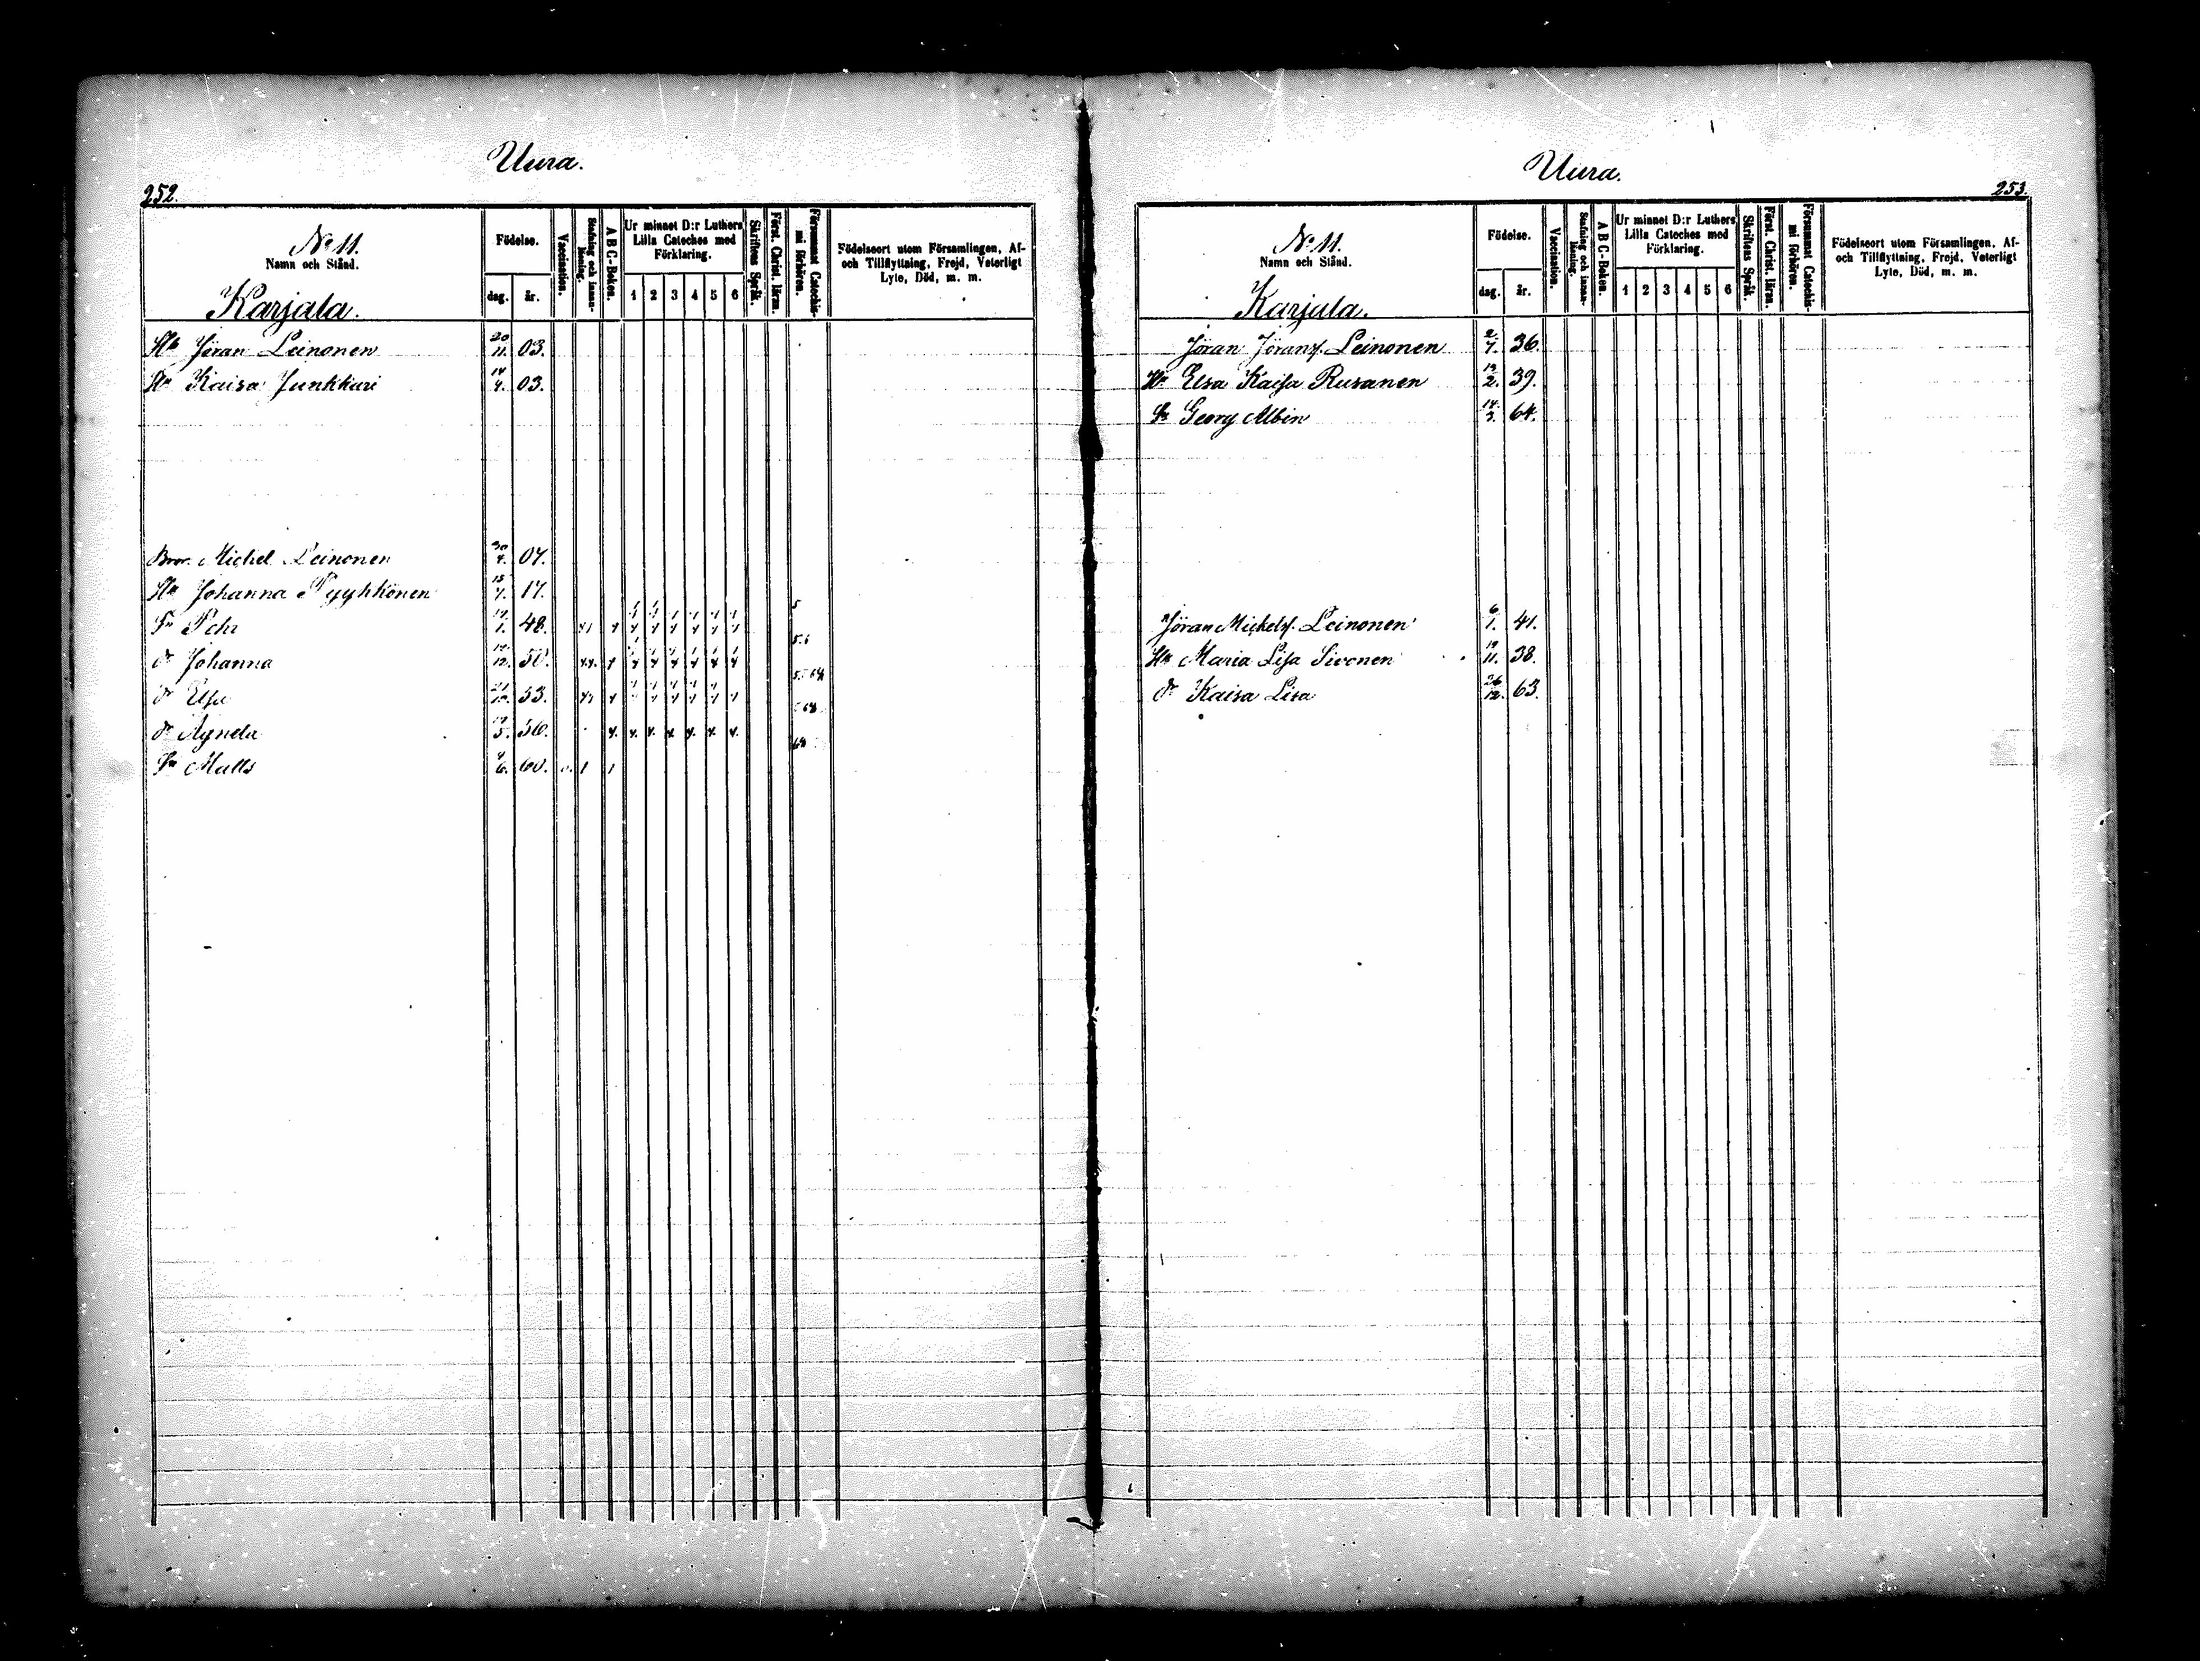 Uura.
252.
No 11.
Namn och Stånd.
Karjala.
Födelse.
dag. år.
Vaccination.
Stafning och innan-läsning.
A B C-Boken.
Ur minnet D:r Luthers
Lilla Cateches med
Förklaring.
1 2 3 4 5 6
Skriftens Språk.
Först. Christ. läran.
Försummat Catechis-
mi förhören.
Födelseort utom Församlingen, Af-
och Tillflyttning, Frejd, Veterligt
Lyte, Död, m. m.
Jöran Leinonen 20/11. 03.
Hu Kaisa Junkkari 14/4. 03.
Bror Michel Leinonen 30/4. 07.
Hu Johanna Pyykkönen 18/7. 17.
Sn Pehr 1. 48.
dr Johanna 12. 50.
dr Elsa 53.
dr Agneta 5. 56.
Sn Matts 6. 60.
Uura.
253.
No 11.
Namn och Stånd.
Karjala.
Födelse.
dag. år.
Vaccination.
Stafning och innan-läsning.
A B C-Boken.
Ur minnet D:r Luthers
Lilla Cateches med
Förklaring.
1 2 3 4 5 6
Skriftens Språk.
Först. Christ. läran.
Försummat Catechis-
mi förhören.
Födelseort utom Församlingen, Af-
och Tillflyttning, Frejd, Veterligt
Lyte, Död, m. m.
Jöran Jöransf. Leinonen 2/7. 36.
Hu Elsa Kajsa Rusanen 2. 39.
Sn Georg Albin 14/3. 64.
Jöran Mickelsf. Leinonen 6/1. 41.
Hu Maria Lisa Sivonen 19/11. 38.
dr Kaisa Lisa 26/12. 63.